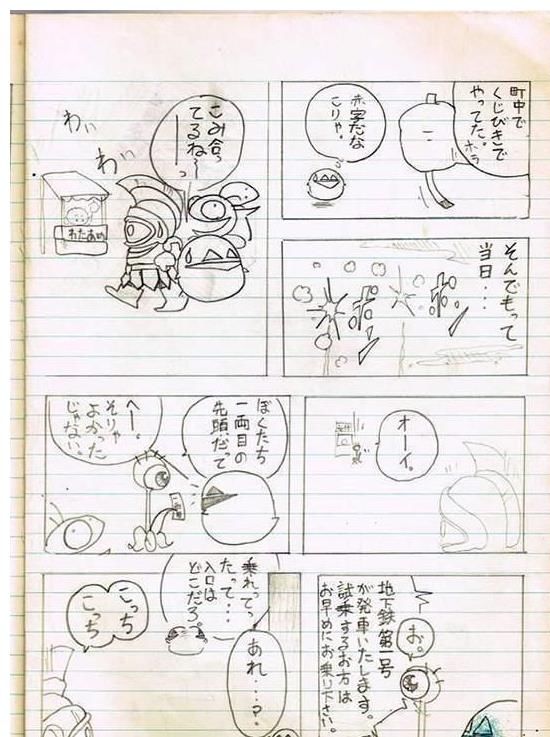 町中で
くじびきで
やってた。ホラ
赤字だな
こりゃ。
そんでもって
当日・・・
ポン
ポン
こみ合っ
てるね〜っ
わい
わい
わたあめ
オーイ。
ぼくたち
一両目の
先頭だって
へー。
そりゃ
よかった
じゃない。
お。
地下鉄第一号
が発車いたします。
試乗するお方は
お早めにお乗り下さい。
乗れって
たって・・・
入口は
どこだろ。
あれ・・・?
こっち
こっち